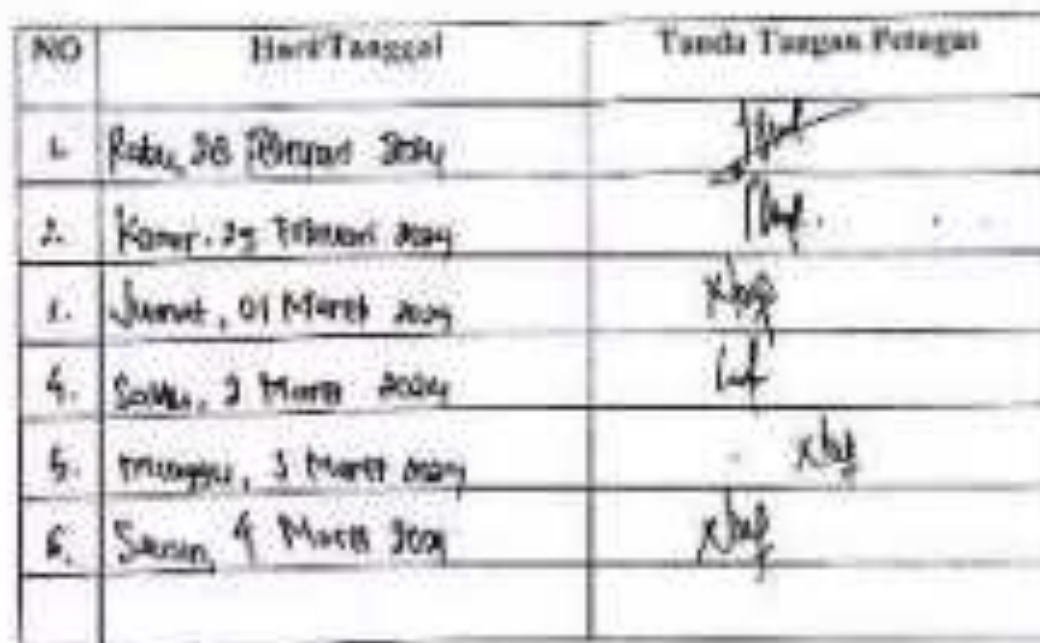 NO Hari/Tanggal Tanda Tangan Petugas
1. Rabu, 28 Februari 2024
2. Kamis, 29 Februari 2024
3. Jumat, 01 Maret 2024
4. Sabtu, 2 Maret 2024
5. minggu, 3 Maret 2024
6. Senin, 4 Maret 2024